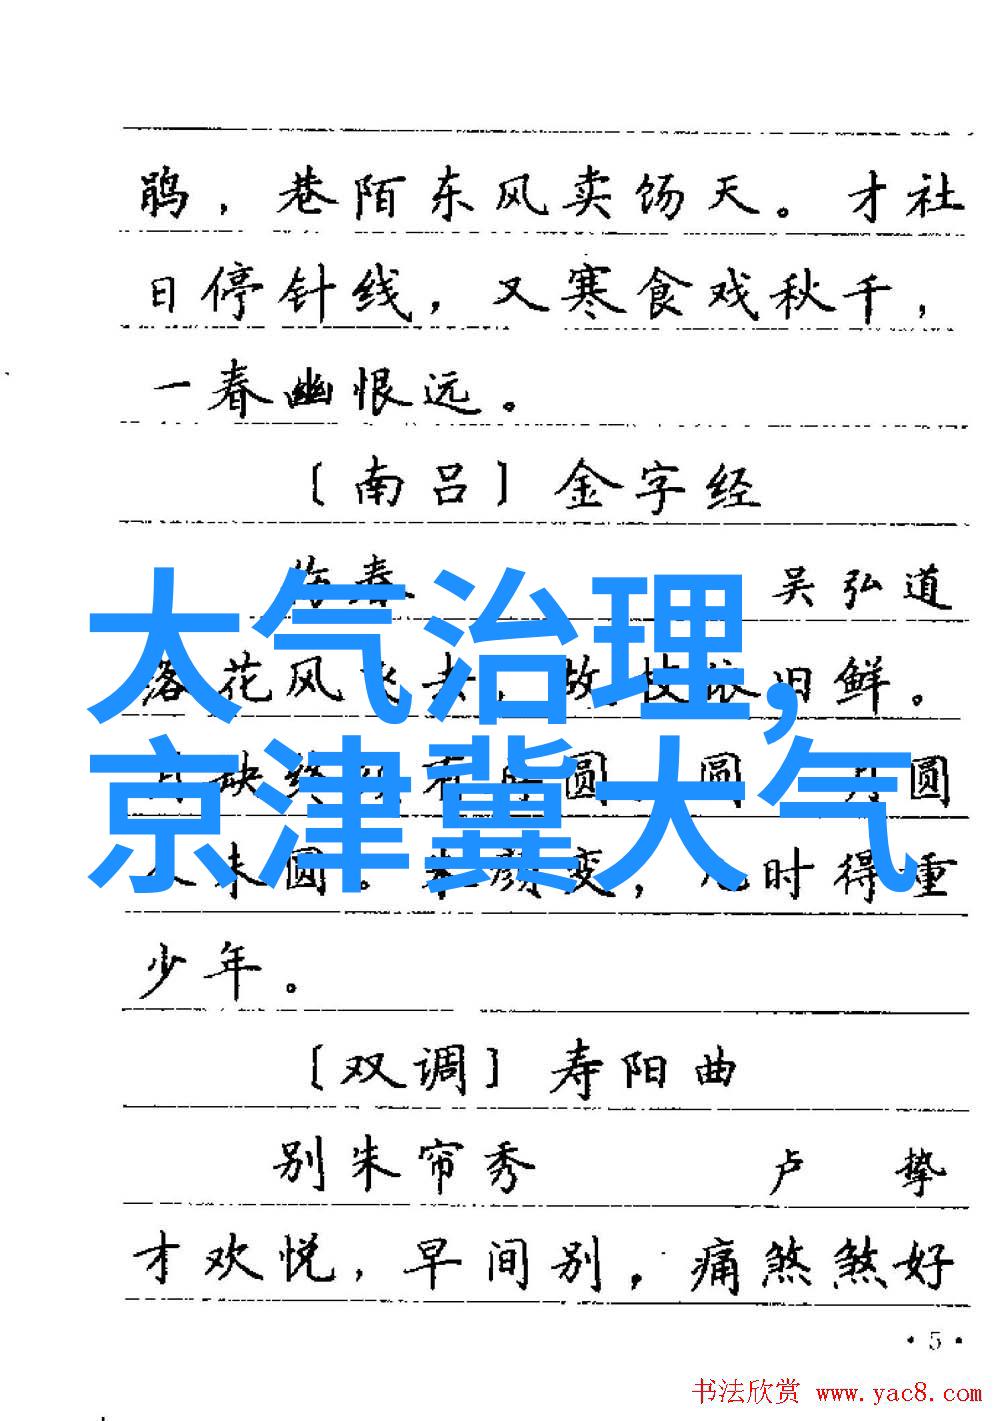 鹃，巷陌东风卖饧天。才社
日停针线，又寒食戏秋千，
一春幽恨远。
〔南吕〕金字经
伤春 吴弘道
大气治理,
落花风飞去，故枝依旧鲜。
京津冀大气
圆 圆 月圆
人未圆。朱颜变，几时得重
少年。
〔双调〕寿阳曲
别朱帘秀 卢挚
才欢悦，早间别，痛煞煞好
·5·
书法欣赏 www.yac8.com